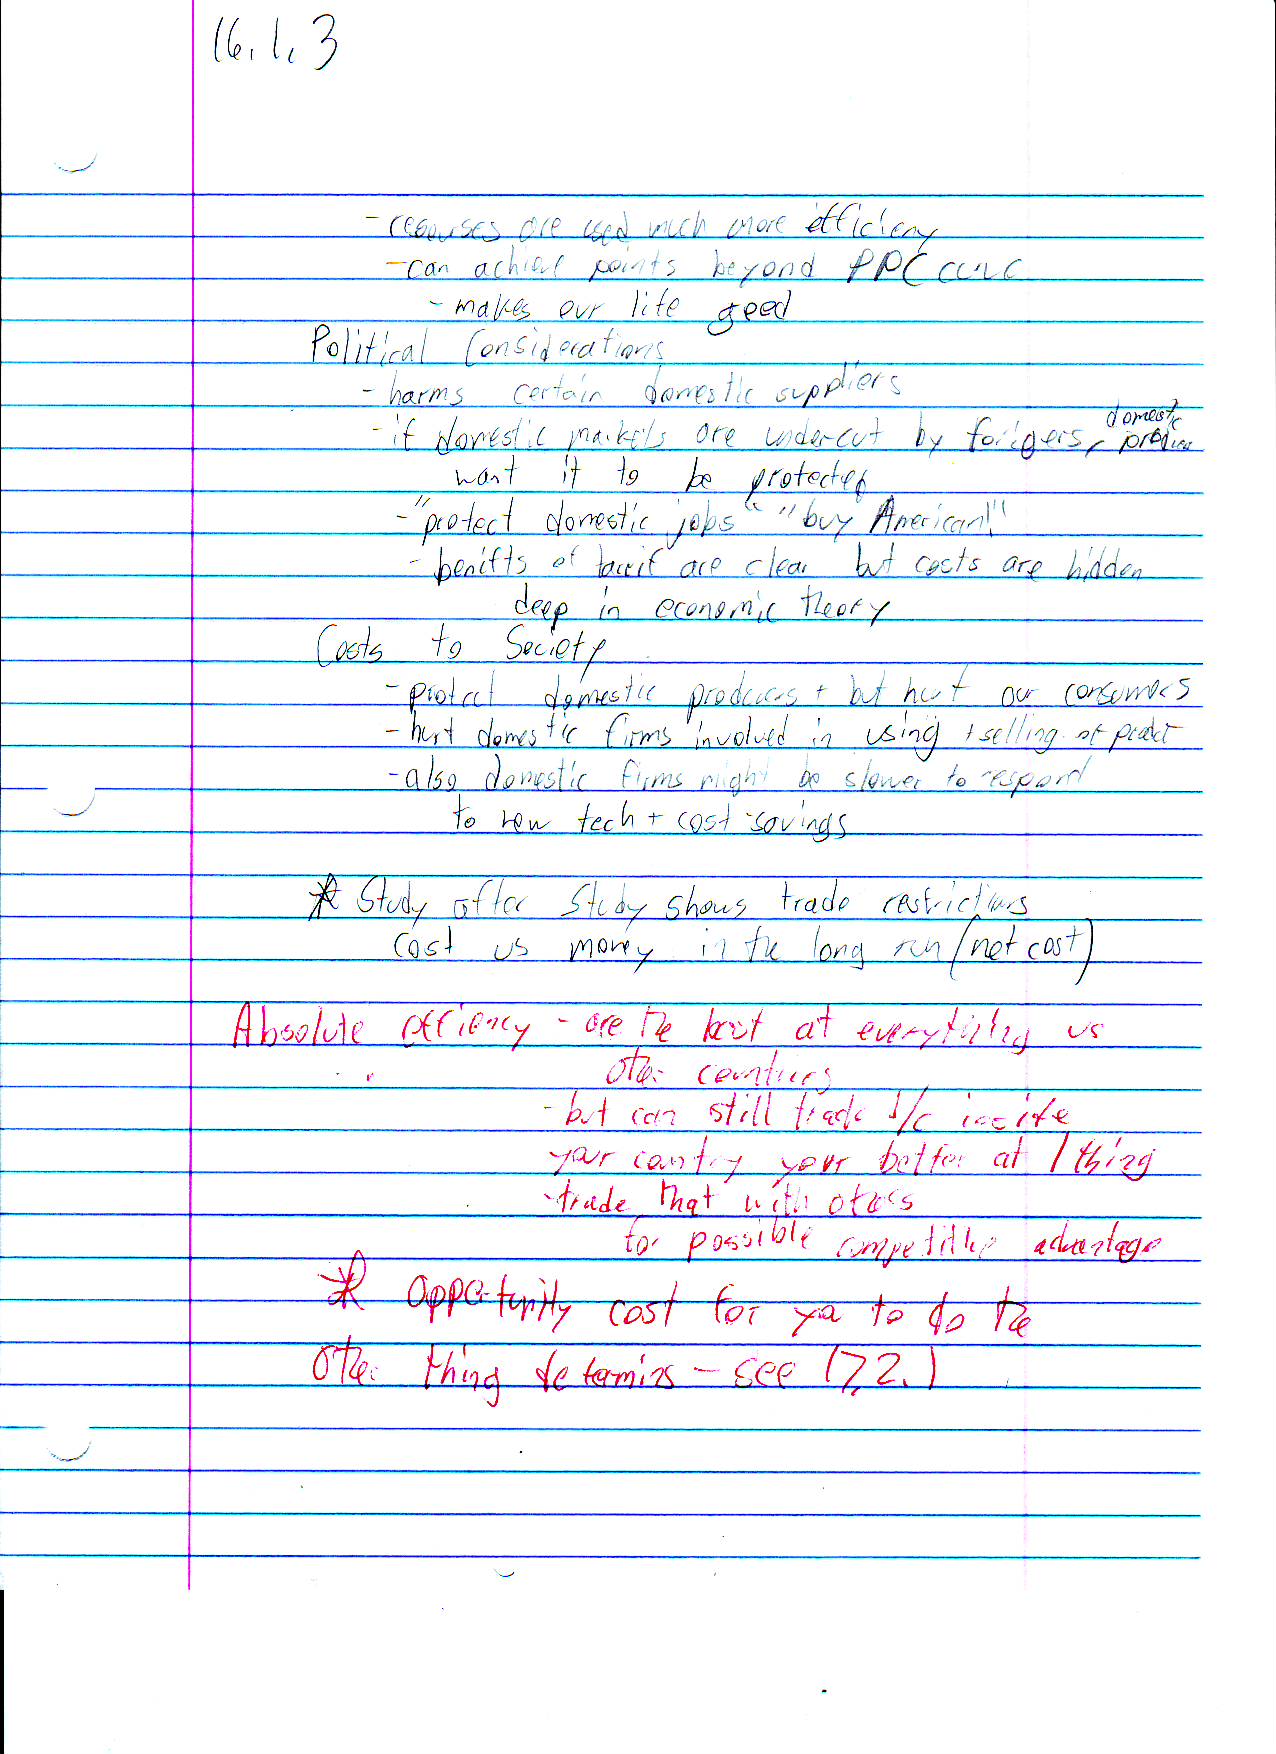 16.1.3
- resourses are used much more efficieny
- can achieve points beyond PPC curve
- makes our life good
Political Considerations
- harms certain domestic suppliers
domestic
- if domestic markets are undercut by forigers, produce
want it to be protected
- "protect domestic jobs" "buy American!"
- benifts of tarrif are clear but costs are hidden
deep in economic theory
Costs to Society
- protect domestic producers + but hurt our consumers
- hurt domestic firms involved in using + selling of product
- also domestic firms might be slower to respond
to new tech + cost-savings
* Study after study shows trade restrictions
cost us money in the long run (net cost)
Absolute efficiency - are the best at everything vs
other countries
- but can still trade b/c inside
your country your better at 1 thing
- trade that with others
for possible competitive advantage
* Opportunity cost for ya to do the
other thing determins - see 17.2.1